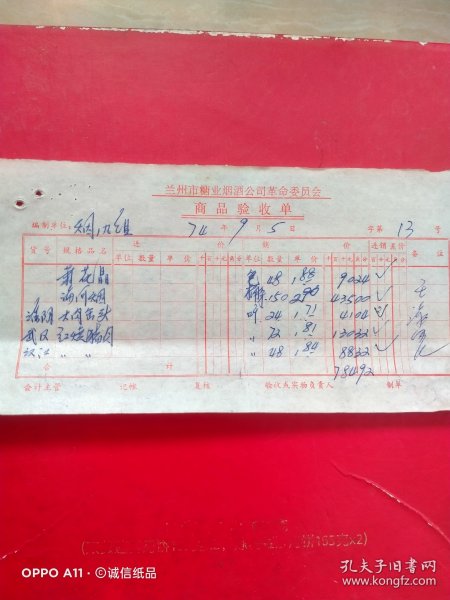 兰州市糖业烟酒公司革命委员会
商品验收单
编制单位: 74年9月5日 字第13号
货号 规格品名 进价 销价 进销差价 备注
单位 数量 单价 千百十元角分 单位 数量 单价 千百十元角分 百十元角分
菊花晶 包 48 1.88 9024
150 2.90 43500
听 24 1.71 4104
武汉 红烧猪肉 〃 72 1.81 13032
汉江 〃 〃 〃 48 1.84 8832
合计 78492
会计主管 记帐 复核 验收或实物负责人 制单
OPPO A11 · ©诚信纸品
孔夫子旧书网
www.kongfz.com